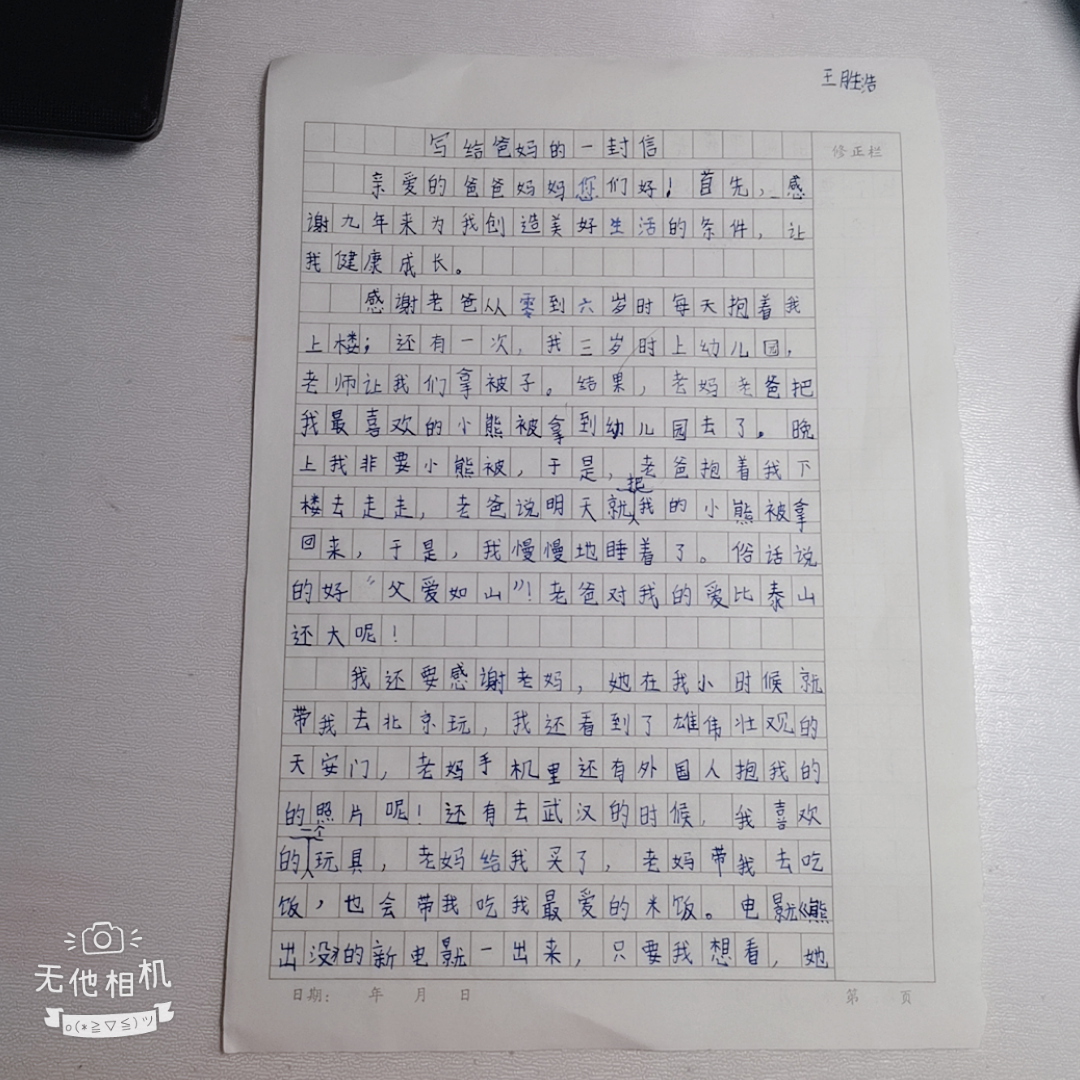 王胜浩
修正栏
写给爸妈的一封信
亲爱的爸爸妈妈您们好！首先，感
谢九年来为我创造美好生活的条件，让
我健康成长。
感谢老爸从零到六岁时每天抱着我
上楼；还有一次，我三岁时上幼儿园，
老师让我们拿被子。结果，老妈老爸把
我最喜欢的小熊被拿到幼儿园去了。晚
上我非要小熊被，于是，老爸抱着我下
楼去走走，老爸说明天就把我的小熊被拿
回来，于是，我慢慢地睡着了。俗话说
的好“父爱如山”！老爸对我的爱比泰山
还大呢！
我还要感谢老妈，她在我小时候就
带我去北京玩，我还看到了雄伟壮观的
天安门，老妈手机里还有外国人抱我的
的照片呢！还有去武汉的时候，我喜欢
的一个玩具，老妈给我买了，老妈带我去吃
饭，也会带我吃我最爱的米饭。电影《熊
出没》的新电影一出来，只要我想看，她
日期： 年 月 日
第 页
无他相机
o(*≧▽≦)ツ